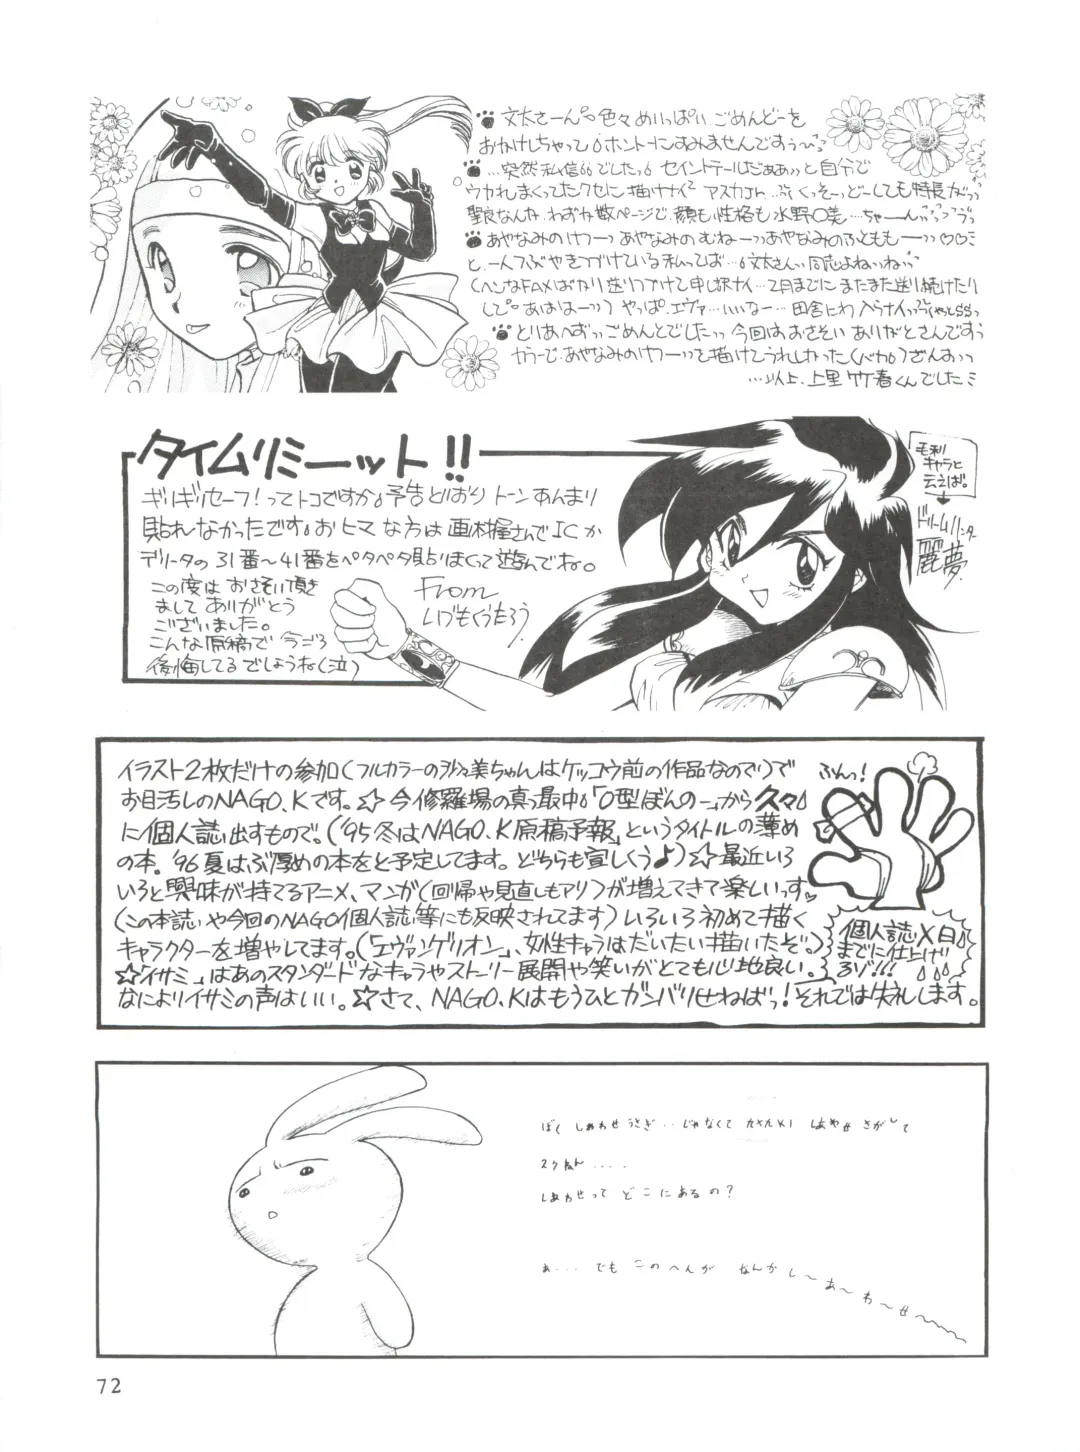 文太さーん 色々めいっぱい ごめんどーを
おかけしちゃって ホントーにすみませんですぅ
…突然私信でしたっ セイントテールだぁぁっと自分で
ウカれまくってたクセに描けナイ
聖良なんか わずか数ページで、顔も性格も水野○美…ちゃーん
あやなみのけつーっ あやなみのむねーっ あやなみのふとももーっ♡♡
と、一人でつぶやきつづけている私ってば… 文太さんっ同志よねっねっ
(ヘンなFAXばかり送りつづけて申し訳ナイ… またまた送り続けたり
して あははーっ) やっぱ、エヴァ…いいなー… 田舎にわ 入らナイ
とりあへずっ ごめんとでしたっ 今回はおさそい ありがとさんですぅ
あやなみのけつーっを描けてうれしかった(バカ)
…以上、上里竹春くんでした
タイムリミーット!!
ギリギリセーフ!ってトコですか。予告どおりトーンあんまり
貼れなかったです。おヒマな方は画材屋さんでICか
デリータの31番〜41番をペタペタ貼りまくって遊んでね。
この度はおさそい頂き
ましてありがとう
ございました。
こんな原稿で今ごろ
後悔してるでしょうね(泣)
From
いづもくうたろう
毛利
キャラと
云えば。
ドリームハンター
麗夢
イラスト2枚だけの参加(フルカラーの美ちゃんはケッコウ前の作品なので)で
お目汚しのNAGO.Kです。☆今修羅場の真っ最中。「O型ぼんのー」から久々
に個人誌出すもので。(「'95冬はNAGO.K原稿予報」というタイトルの薄め
の本。'96夏はぶ厚めの本をと予定してます。どちらも宜しくぅ♪)☆最近いろ
いろと興味が持てるアニメ、マンガ(回帰や見直しもアリ)が増えてきて楽しいっす♡
(この本誌や今回のNAGO個人誌等にも反映されてます)いろいろ初めて描く
キャラクターを増やしてます。(「エヴァンゲリオン」、女性キャラはだいたい描いたぞ。)
☆「イサミ」はあのスタンダードなキャラやストーリー展開や笑いがとても心地良い。
なによりイサミの声はいい。☆さて、NAGO.Kはもうひとガンバりせねばっ!それでは失礼します。
ふんっ!
個人誌〆日
までに仕上げ
るゾ!!!
ぼく しあわせうさぎ・・じゃなくて はやせ さがして
しあわせって どこにあるの?
あ・・・・ でも このへんが なんか し〜あ〜わ〜せ〜
72